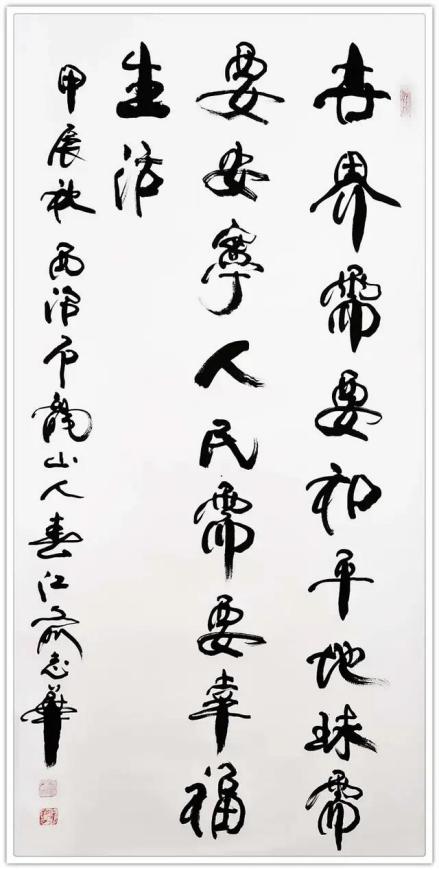 世界需要和平地球需
要安寧人民需要幸福
生活
甲辰秋西泠龍山人春江俞志華